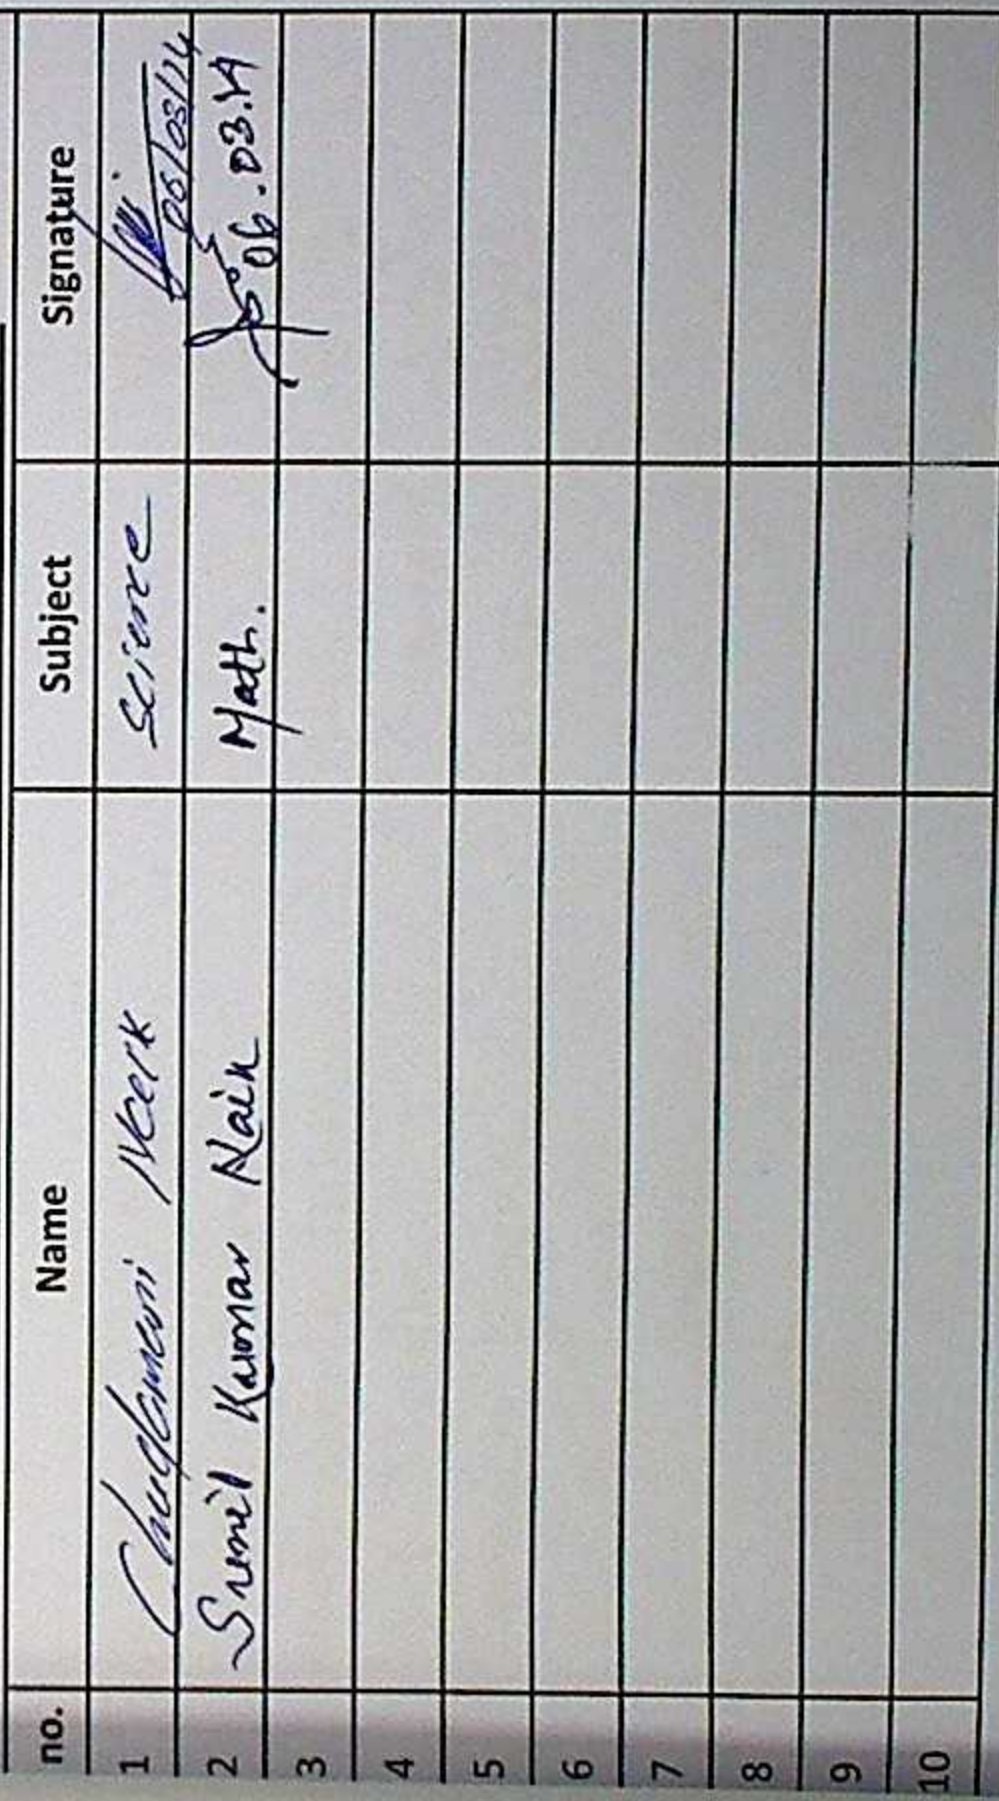 no. Name Subject Signature
1 Chudamani Naik Science 06/03/24
2 Sunil Kumar Naik Math. 06.03.24
3
4
5
6
7
8
9
10